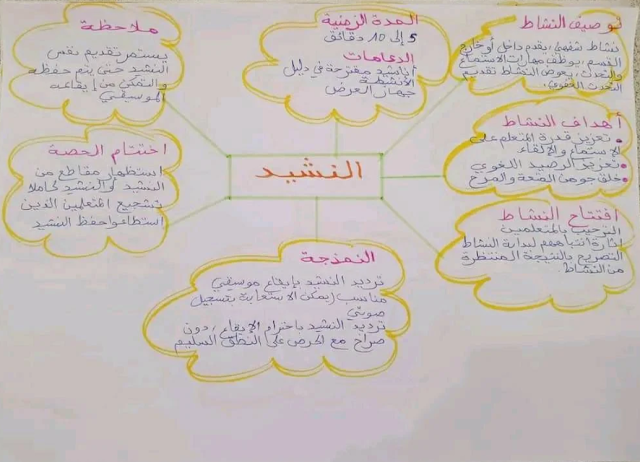 توصيف النشاط
نشاط شفهي، يقدم داخل أو خارج
القسم، يوظف مهارات الاستماع
والتحدث، يعوض النشاط تقديم
التحدث اللغوي.
المدة الزمنية
5 إلى 10 دقائق
الدعامات
أناشيد مقترحة في دليل
الأنشطة
جهاز العرض
ملاحظة
يستمر تقديم نفس
النشيد حتى يتم حفظه
والتمكن من إيقاعه
الموسيقي
أهداف النشاط
• تعزيز قدرة المتعلم على
الاستماع والإلقاء
• تعزيز الرصيد اللغوي
• خلق جو من المتعة والمرح
النشيد
اختتام الحصة
استظهار مقاطع من
النشيد أو النشيد كاملا
تشجيع المتعلمين الذين
استطاعوا حفظ النشيد
افتتاح النشاط
الترحيب بالمتعلمين
إثارة انتباههم لبداية النشاط
التصريح بالنتيجة المنتظرة
من النشاط.
النمذجة
ترديد النشيد بإيقاع موسيقي
مناسب (يمكن الاستعانة بتسجيل
صوتي
ترديد النشيد باحترام الإيقاع، دون
صراخ مع الحرص على النطق السليم